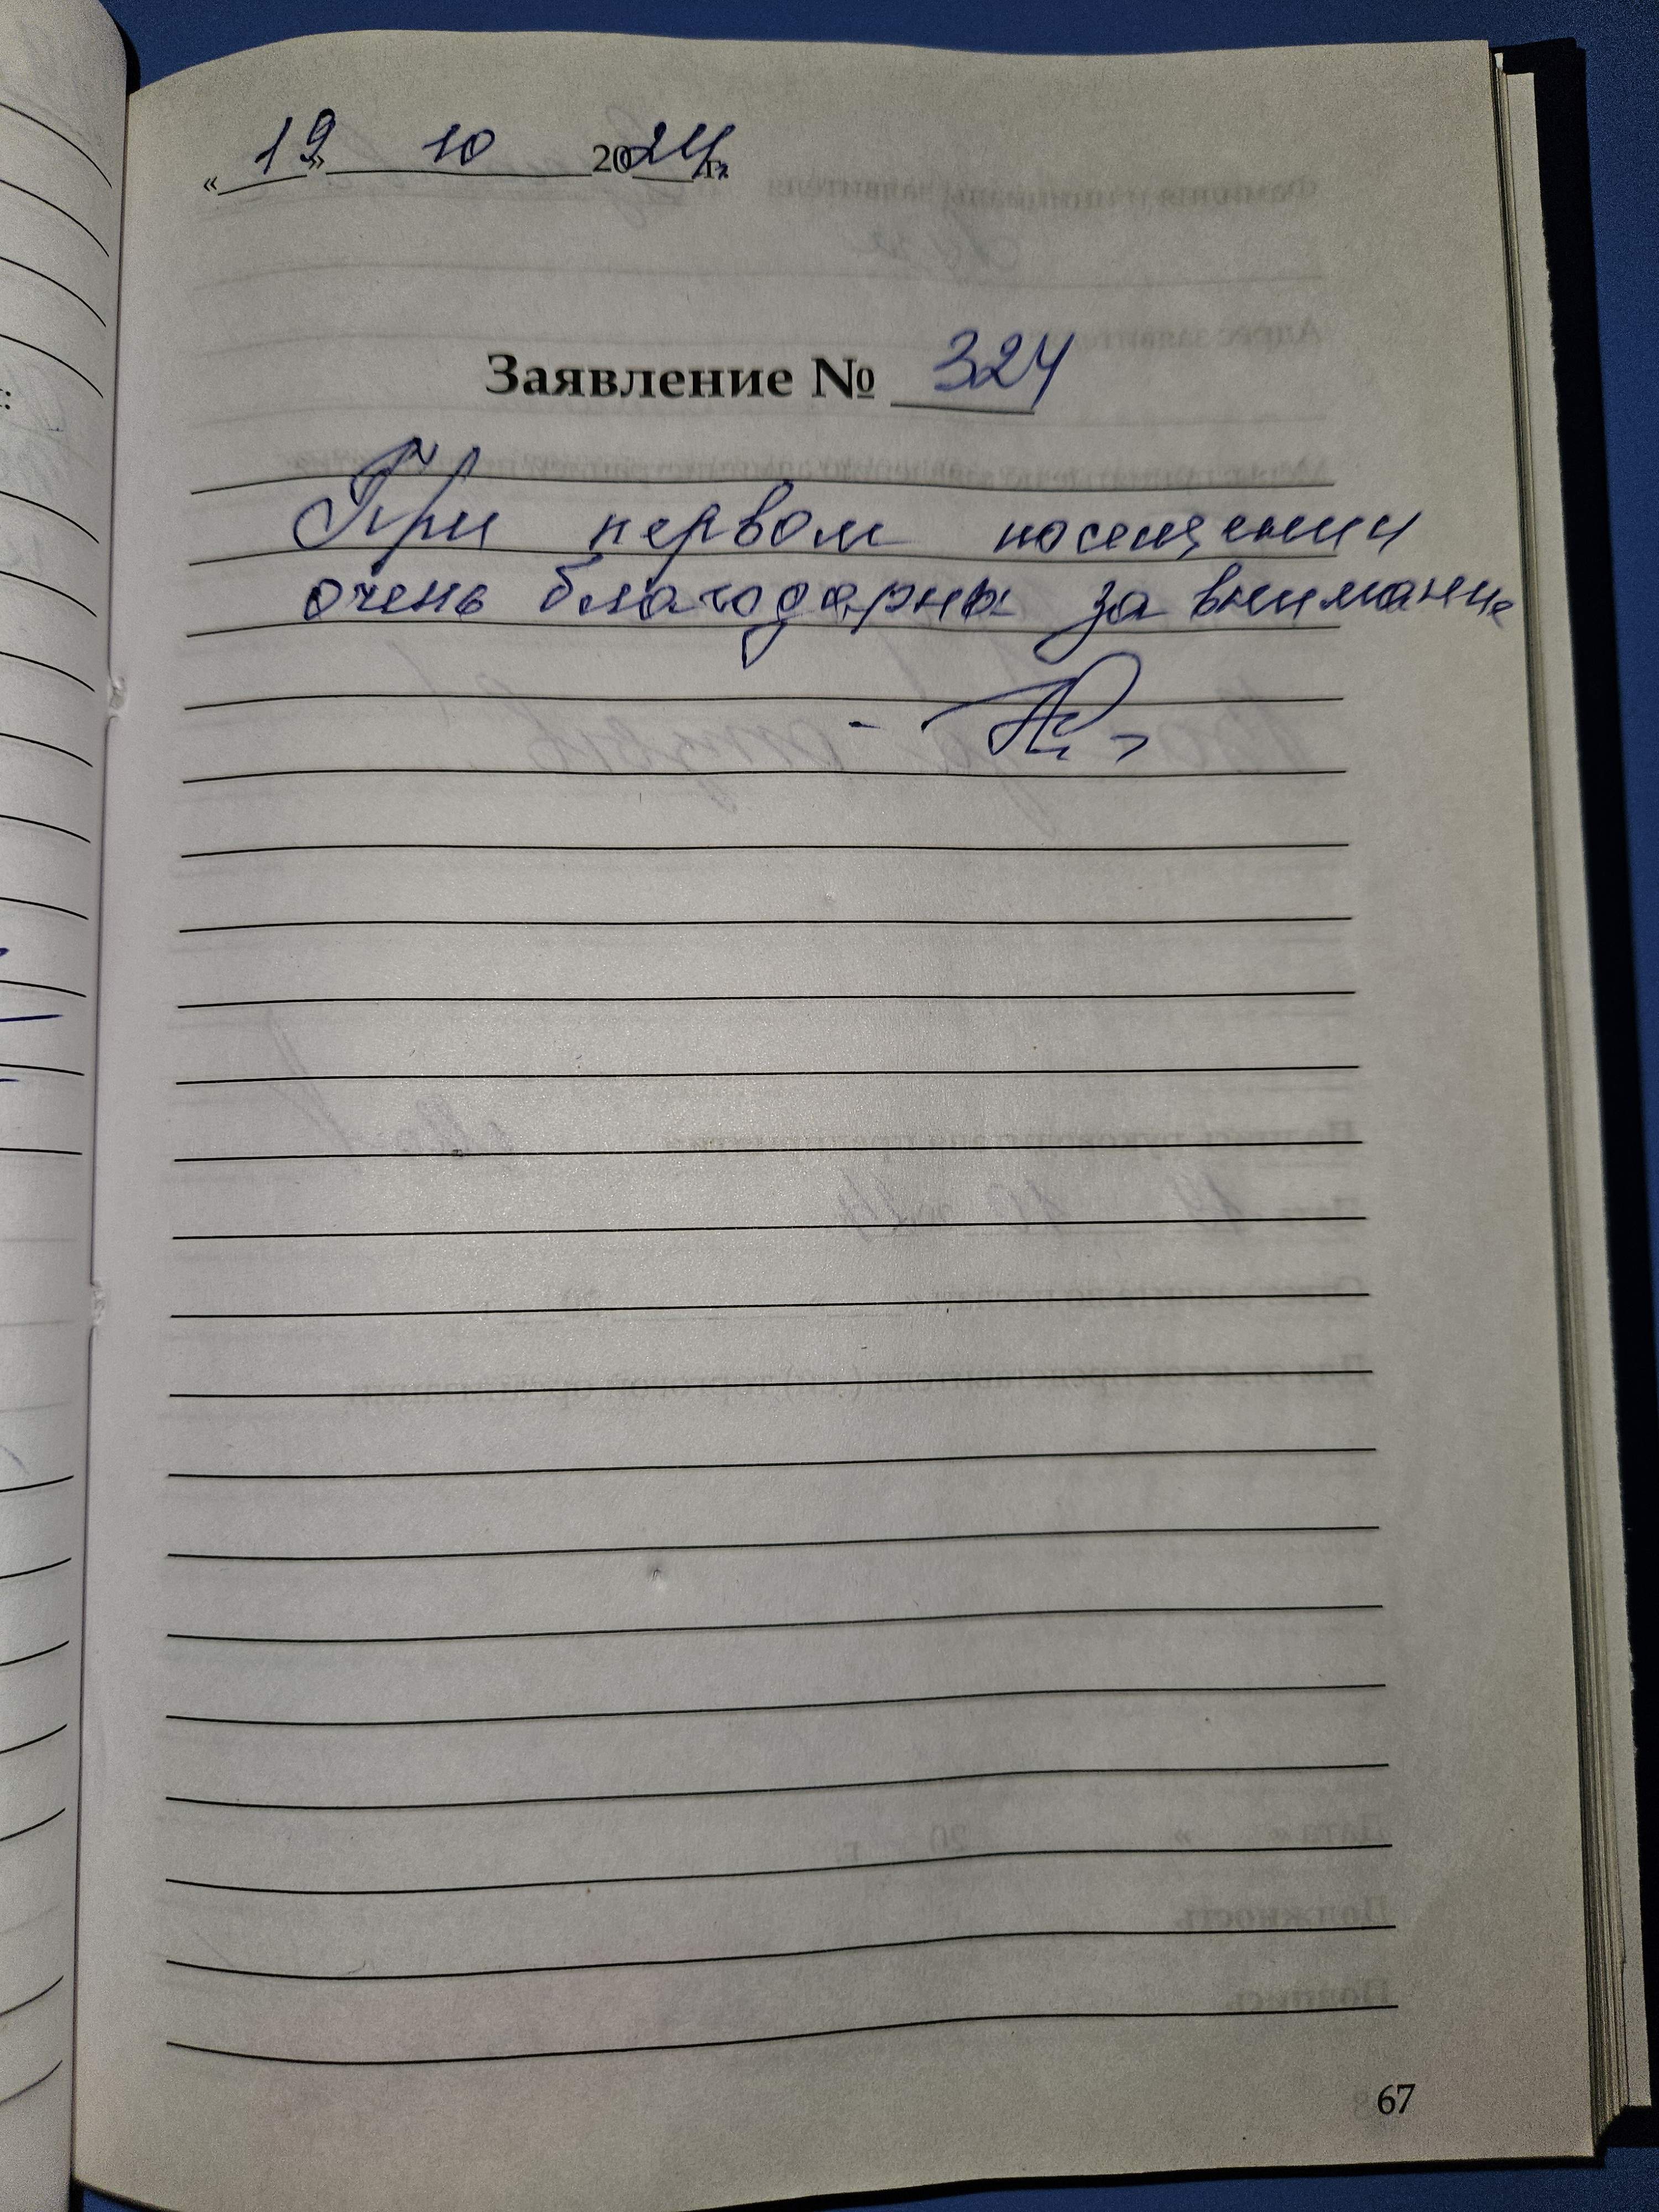 «19» 10 2024 г.
Заявление № 324
При первом посещении
очень благодарны за внимание
67